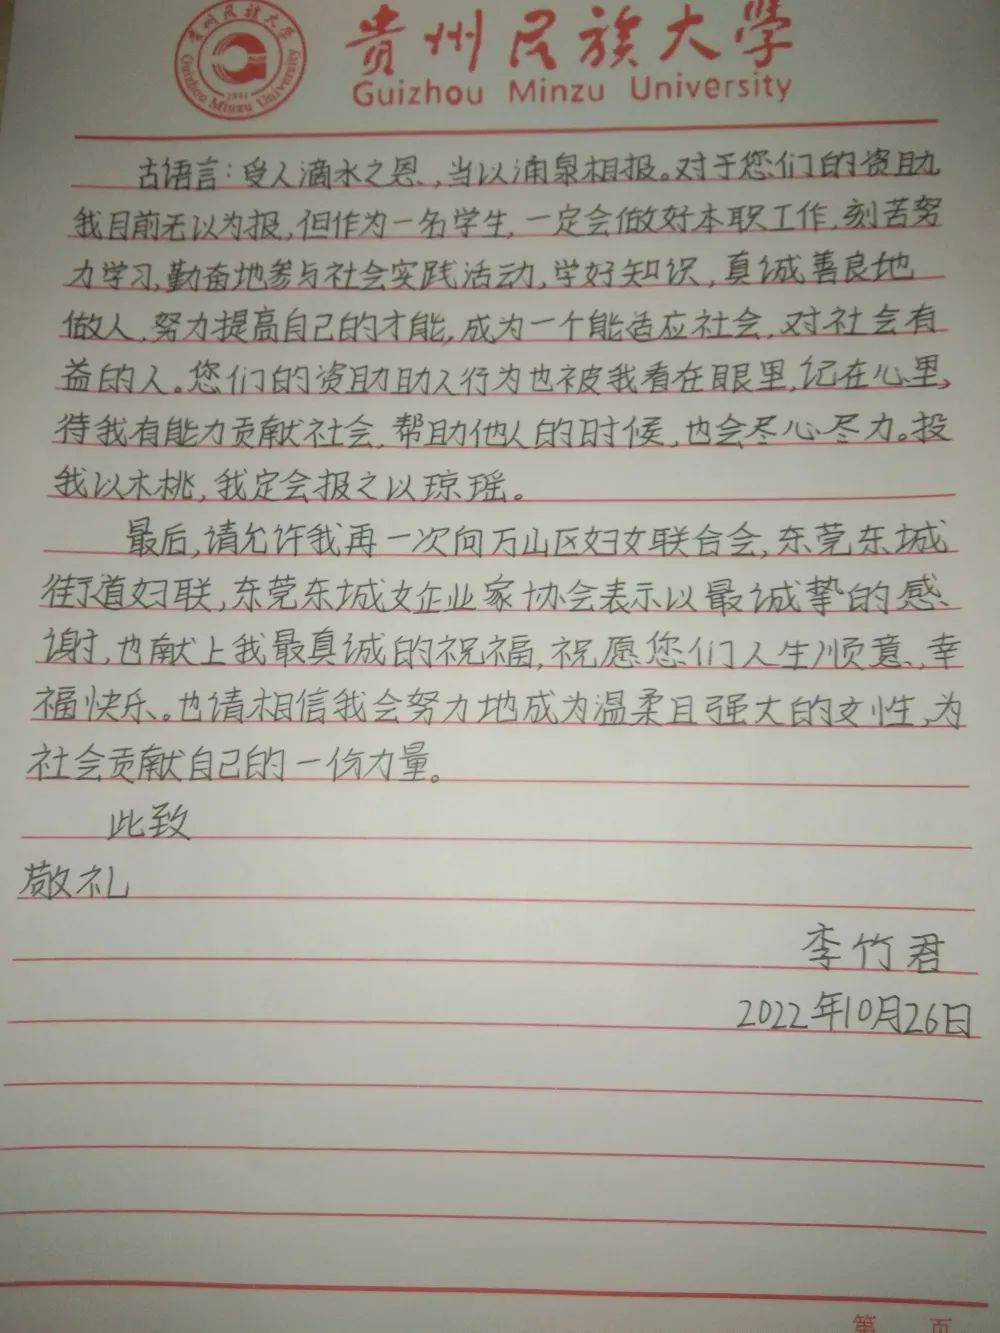 贵州民族大学
Guizhou Minzu University
贵州民族大学
1951
Guizhou Minzu University
古语言:受人滴水之恩,当以涌泉相报。对于您们的资助,
我目前无以为报,但作为一名学生,一定会做好本职工作,刻苦努
力学习,勤奋地参与社会实践活动,学好知识,真诚善良地
做人,努力提高自己的才能,成为一个能适应社会,对社会有
益的人。您们的资助助人行为也被我看在眼里,记在心里,
待我有能力贡献社会,帮助他人的时候,也会尽心尽力。投
我以木桃,我定会报之以琼瑶。
最后,请允许我再一次向万山区妇女联合会,东莞东城
街道妇联,东莞东城女企业家协会表示以最诚挚的感
谢,也献上我最真诚的祝福,祝愿您们人生顺意、幸
福快乐。也请相信我会努力地成为温柔且强大的女性,为
社会贡献自己的一份力量。
此致
敬礼
李竹君
2022年10月26日
第 页